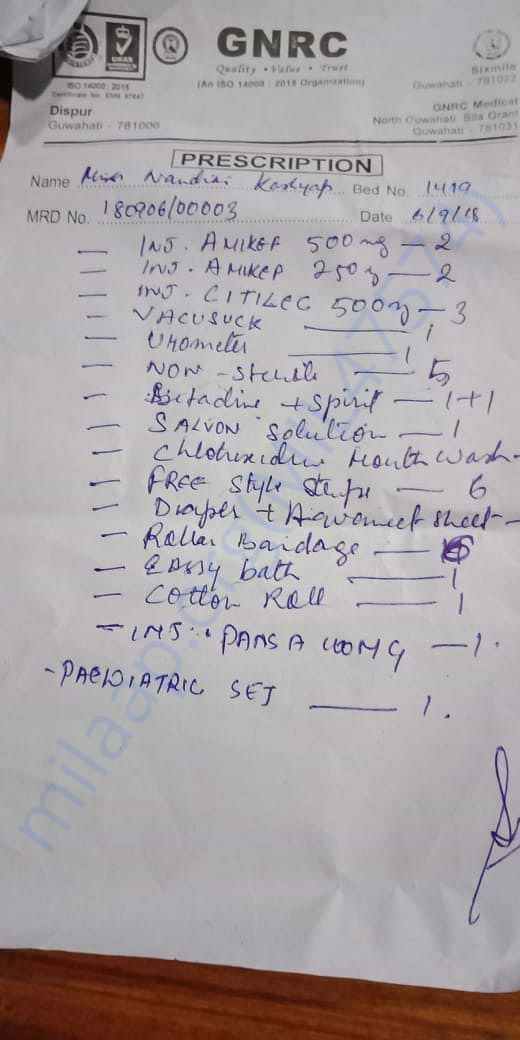 UKAS
ISO 14000 : 2015
GNRC
Quality • Value • Trust
(An ISO 14000 : 2015 Organization)
Sixmile
Guwahati - 781022
Dispur
Guwahati - 781006
GNRC Medical
North Guwahati, Sila Grant
Guwahati - 781031
PRESCRIPTION
Name Miss Nandini Kashyap Bed No. 1419
MRD No. 180906/00003 Date 6/9/18
— INJ. AMIKEF 500 mg — 2
— INJ. AMIKEF 250 — 2
— INJ. CITILEC 500 — 3
— VACUSUCK — 1
— Urometer — 1
— NON - Sterile — 5
— Betadine + Spirit — 1+1
— SALVON Solution — 1
— Chlohexidine Mouth Wash -
— FREE Style Strips — 6
— Diaper + sheet -
— Roller Bandage —
— EASSY bath — 1
— Cotton Roll — 1
— INJ. PANSA MG — 1.
- PAEDIATRIC SET — 1.
milaap.org